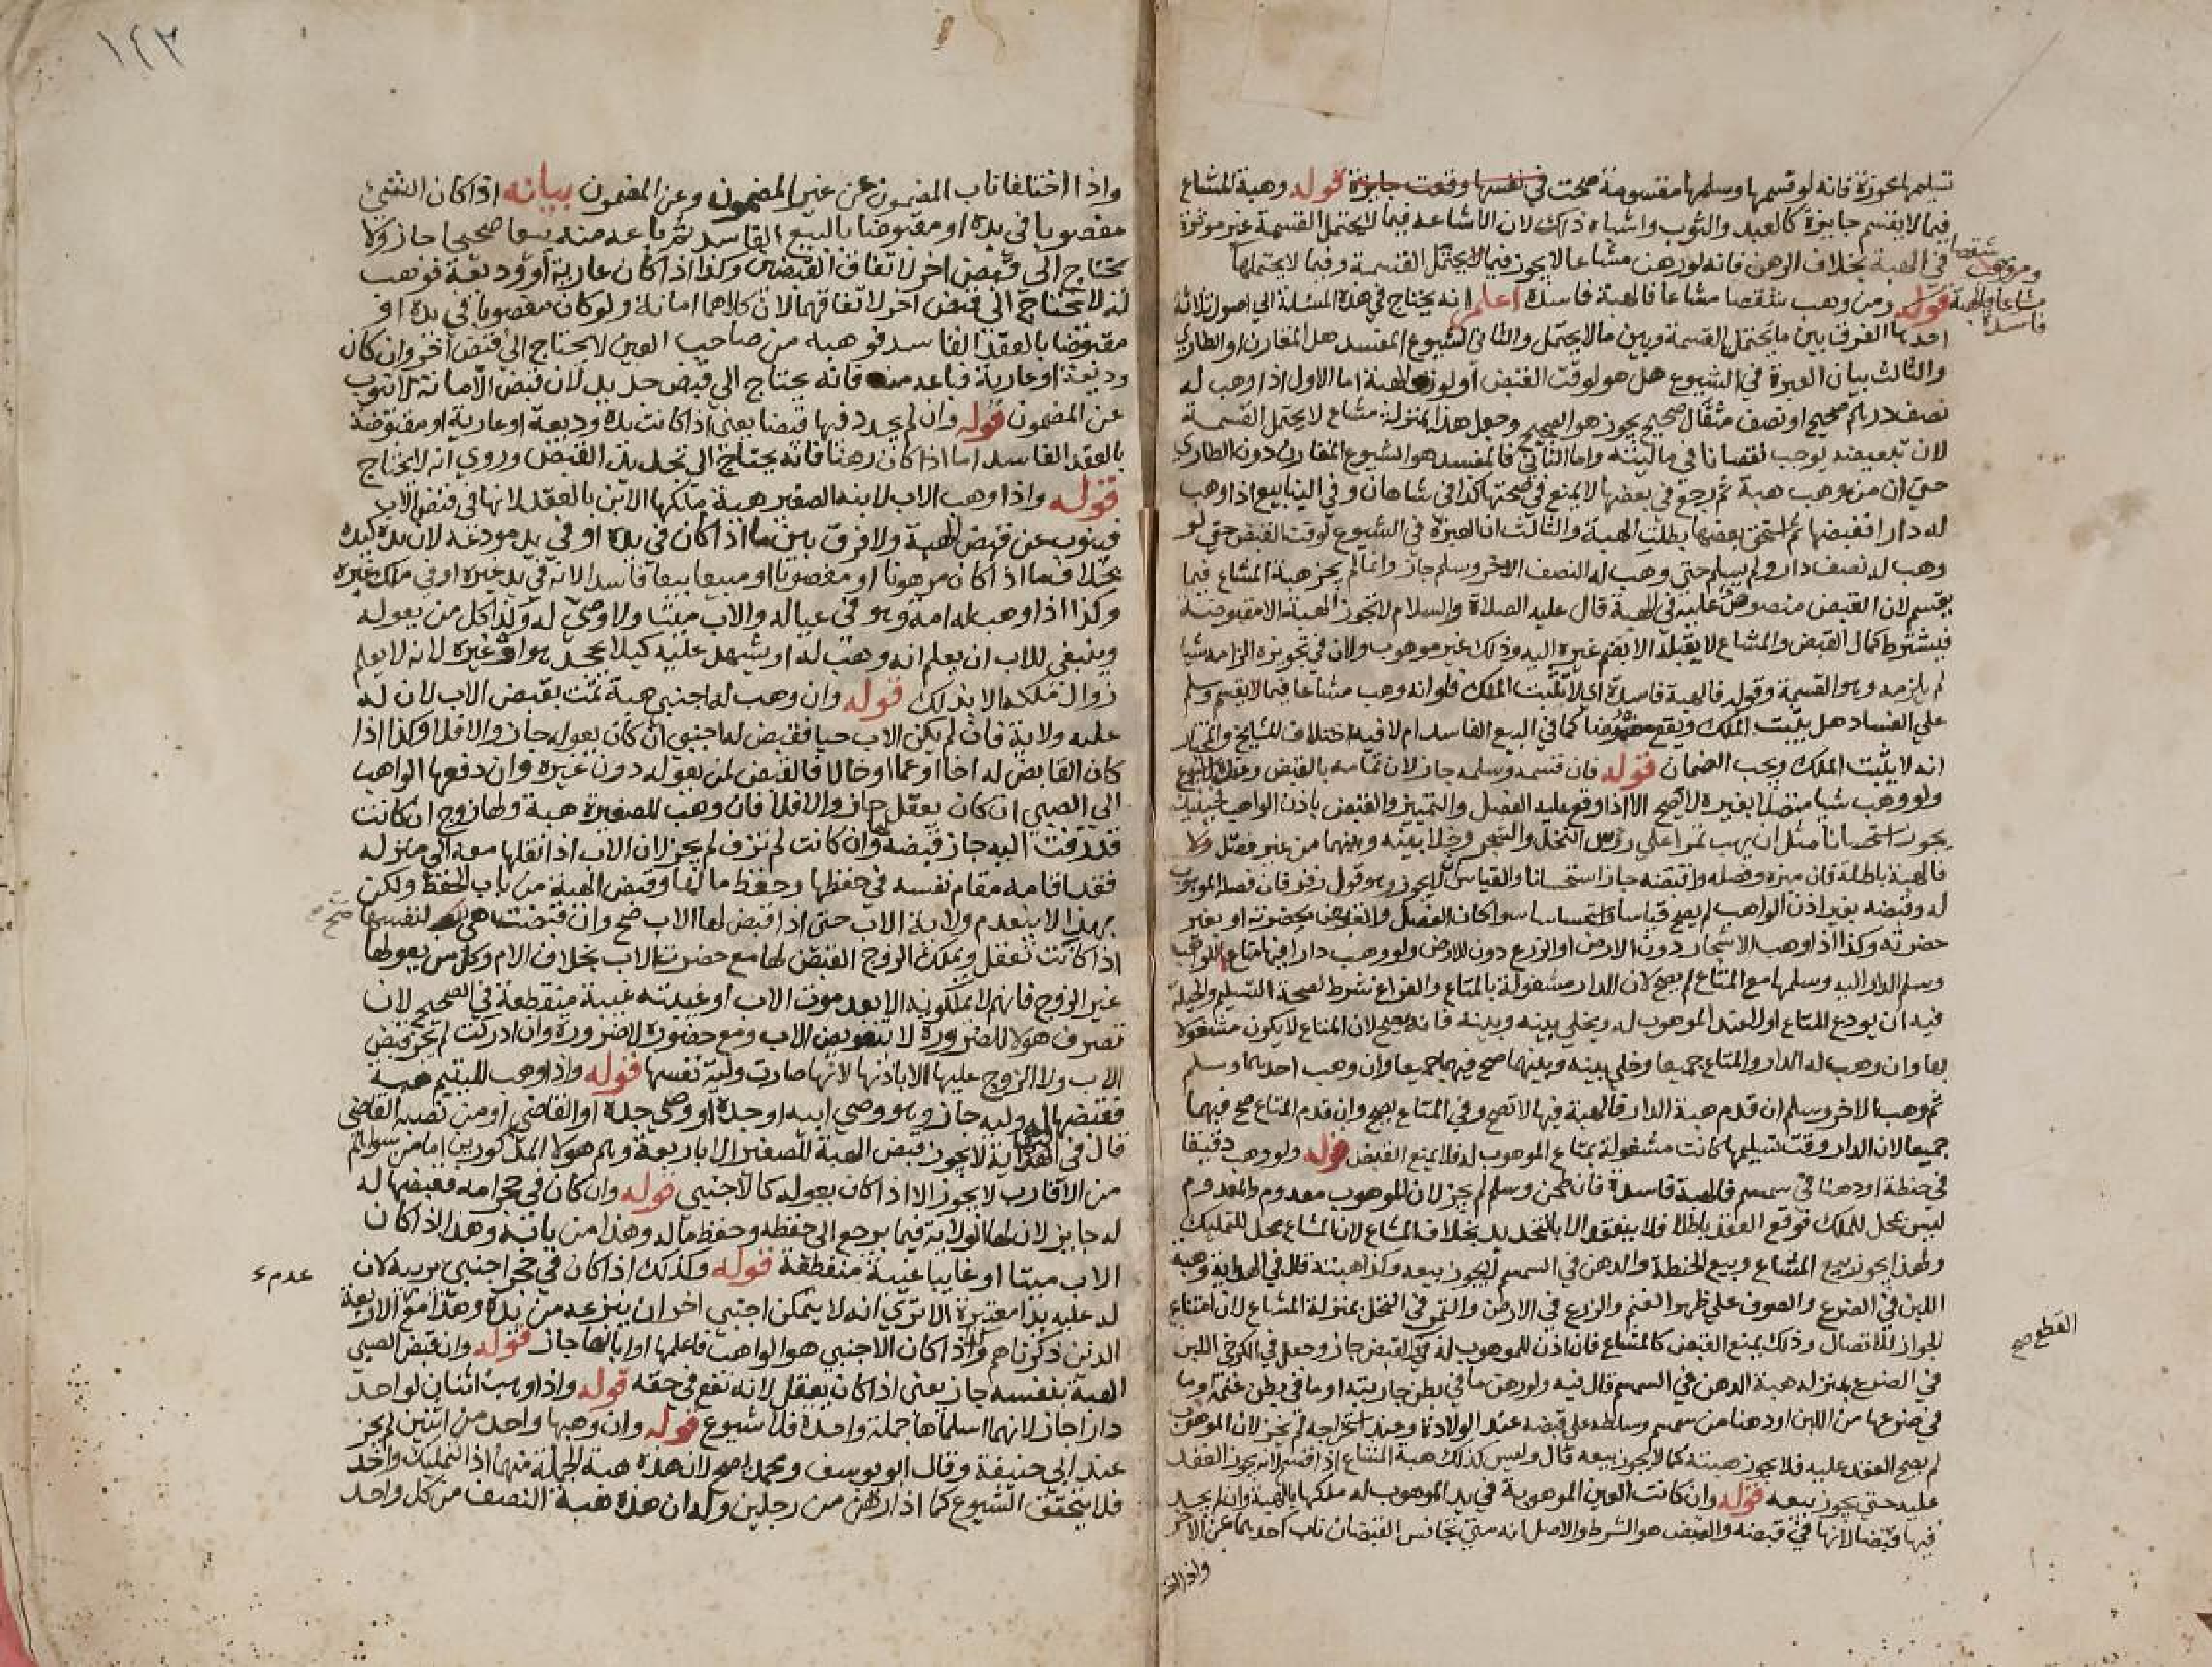 تسليمها محوزة فانه لو قسمها وسلمها مقسومة صحت في نفسها وقعت جايزة قوله وهبة المشاع
فيما لا يقسم جايزة كالعبد والثوب واشباه ذلك لان الاشاعه فيما لا يحتمل القسمة غير موثرة
في الهبة بخلاف الرهن فانه لو رهن مشاعا لا يجوز فيما لا يحتمل القسمة وفيما لا يحتملها
قوله ومن وهب شقصا مشاعا فالهبة فاسدة اعلم انه يحتاج في هذه المسئلة الي اصول ثلاثة
احدها الفرق بين ما يحتمل القسمة وبين ما لا يحتمل والثاني الشيوع المفسد هل المقارن او الطاري
والثالث بيان العبرة في الشيوع هل هو لوقت القبض او لوقت الهبة اما الاول اذا وهب له
نصف درهم صحيح او نصف مثقال صحيح يجوز هو الصحيح وجعل هذا بمنزلة مشاع لا يحتمل القسمة
لان تبعيضه يوجب نقصانا في ماليته واما الثاني فالمفسد هو الشيوع المقارن دون الطاري
حتي ان من وهب هبة ثم رجع في بعضها لا يمنع في صحتها كذا في شاهان وفي الينابيع اذا وهب
له دارا فقبضها ثم استحق بعضها بطلت الهبة والثالث ان العبرة في الشيوع لوقت القبض حتي لو
وهب له نصف دار ولم يسلم حتي وهب له النصف الاخر وسلم جاز وانما لم يجز هبة المشاع فيما
يقسم لان القبض منصوص عليه في الهبة قال عليه الصلاة والسلام لا تجوز الهبة الا مقبوضة
فيشترط كمال القبض والمشاع لا يقبله الا بضم غيره اليه وذلك غير موهوب ولان في تجويزه الزامه شيا
لم يلزمه وهو القسمة وقوله فالهبة فاسدة اي لا تثبت الملك فلو انه وهب مشاعا فيما لا يقسم وسلم
علي الفساد هل يثبت الملك ويقع مضمونا كما في البيع الفاسد ام لا فيه اختلاف المشايخ والمختار
انه لا يثبت الملك ويجب الضمان قوله فان قسمه وسلمه جاز لان تمامه بالقبض وعنده لا شيوع
ولو وهب شيا متصلا بغيره لا يصح الا اذا وقع عليه الفصل والتمييز والقبض باذن الواهب فحينئذ
يجوز استحسانا مثل ان يهب ثمرا علي رؤس النخل والشجر وخلا بينه وبينهما من غير فصل ولا
فالهبة باطلة فان ميزه وفصله واقبضه جاز استحسانا والقياس لا يجوز وهو قول زفر فان فصله الموهوب
له وقبضه بغير اذن الواهب لم يصح قياسا واستحسانا سوا كان الفصل والقبض بحضرته او بغير
حضرته وكذا اذا وهب الاشجار دون الارض او الزرع دون الارض ولو وهب دارا فيها متاع للواهب
وسلم الدار اليه وسلمها مع المتاع لم يصح لان الدار مشغولة بالمتاع والفراغ شرط لصحة التسليم والحيلة
فيه ان يودع المتاع اولا عند الموهوب له ويخلي بينه وبينه فانه يصح لان المتاع لا يكون مشغولا
بها وان وهب له الدار والمتاع جميعا وخلي بينه وبينهما صح فيهما جميعا وان وهب احدهما وسلم
ثم وهب الاخر وسلم ان قدم هبة الدار فالهبة فيها لا تصح وفي المتاع يصح وان قدم المتاع صح فيهما
جميعا لان الدار وقت تسليمها كانت مشغولة بمتاع الموهوب له فلا يمنع القبض قوله ولو وهب دقيقا
في حنطة او دهنا في سمسم فالهبة فاسدة فان طحن وسلم لم يجز لان الموهوب معدوم والمعدوم
ليس محل للملك فوقع العقد باطلا فلا ينعقد الا بالتجديد بخلاف المشاع لان المشاع محل للتمليك
ولهذا يجوز بيع المشاع وبيع الحنطة والدهن في السمسم لا يجوز بيعه وكذا هبته قال في الهداية وهبة
اللبن في الضرع والصوف علي ظهر الغنم والزرع في الارض والتمر في النخل بمنزلة المشاع لان امتناع
الجواز للاتصال وذلك يمنع القبض كالمشاع فان اذن للموهوب له في القبض جاز وجعل في الكرخي اللبن
في الضرع بمنزلة هبة الدهن في السمسم قال فيه ولو رهن ما في بطن جاريته او ما في بطن غنمه وما
في ضروعها من اللبن او دهنا من سمسم وسلطه علي قبضه عند الولادة وعند استخراجه لم يجز لان الموهوب
لم يصح العقد عليه فلا يجوز هبته كما لا يجوز بيعه قال وليس كذلك هبة المشاع اذا قسم لانه يجوز العقد
عليه حتي يجوز بيعه قوله وان كانت العين الموهوبة في يد الموهوب له ملكها بالهبة وان لم يجدد
فيها قبضا لانها في قبضه والقبض هو الشرط والاصل انه متي تجانس القبضان ناب احدهما عن الاخر
واذا اختـ
ومن وهب شقصا
مشاعا فالهبة
فاسدة
القطع صح
١٤٣
واذا اختلفا ناب المضمون عن غير المضمون وعن المضمون بيانه اذا كان الشيئ
مغصوبا في يده او مقبوضا بالبيع الفاسد ثم باعه منه بيعا صحيحا جاز ولا
يحتاج الي قبض اخر لاتفاق القبضين وكذا اذا كان عارية او وديعة فوهب
له لا يحتاج الي قبض اخر لاتفاقهما لان كلاهما امانة ولو كان مغصوبا في يده او
مقبوضا بالعقد الفاسد فوهبه من صاحب العين لا يحتاج الي قبض اخر وان كان
وديعة او عارية فباعه منه فانه يحتاج الي قبض جديد لان قبض الامانة لا ينوب
عن المضمون قوله وان لم يجدد فيها قبضا يعني اذا كانت يده وديعة او عارية او مقبوضة
بالعقد الفاسد اما اذا كان رهنا فانه يحتاج الي تجديد القبض وروي انه لا يحتاج
قوله واذا وهب الاب لابنه الصغير هبة ملكها الابن بالعقد لانها في قبض الاب
فينوب عن قبض الهبة ولا فرق بين ما اذا كان في يده او في يد مودعه لان يده كيده
بخلاف ما اذا كان مرهونا او مغصوبا او مبيعا بيعا فاسدا لانه في يد غيره او في ملك غيره
وكذا اذا وهب له امه وهو في عيالها والاب ميتا ولا وصي له وكذا كل من يعوله
وينبغي للاب ان يعلم انه وهب له او يشهد عليه كيلا يجحد هو او غيره لانه لا يعلم
زوال ملكه الا بذلك قوله وان وهب له اجنبي هبة تمت بقبض الاب لان له
عليه ولاية فان لم يكن الاب حيا فقبض له اجنبي ان كان يعوله جاز والا فلا وكذا اذا
كان القابض له اخا او عما او خالا فالقبض لمن يعوله دون غيره وان دفعها الواهب
الي الصبي ان كان يعقل جاز والا فلا فان وهب للصغيرة هبة ولها زوج ان كانت
قد زفت اليه جاز قبضه وان كانت لم تزف لم يجز لان الاب اذا نقلها معه الي منزله
فقد اقامه مقام نفسه في حفظها وحفظ مالها وقبض الهبة من باب الحفظ ولكن
بهذا لا ينعدم ولاية الاب حتي اذا قبض لها الاب صح وان قبضت هي لنفسها صح
اذا كانت تعقل ويملك الزوج القبض لها مع حضرت الاب بخلاف الام وكل من يعولها
غير الزوج فانهم لا يملكونه الا بعد موت الاب او غيبته غيبة منقطعة في الصحيح لان
تصرف هولا للضرورة لا بتفويض الاب ومع حضوره لا ضرورة وان ادركت لم يجز قبض
الاب ولا الزوج عليها الا باذنها لانها صارت ولية نفسها قوله واذا وهب لليتيم هبة
فقبضها له وليه جاز وهو وصي ابيه او جده او وصي جده او القاضي او من نصبه القاضي
قال في الهداية لا يجوز قبض الهبة للصغير الا باربعة وهم هولا المذكورين اما من سواهم
من الاقارب لا يجوز الا اذا كان يعوله كالاجنبي قوله وان كان في حجر امه فقبضها له
له جايز لان لها الولاية فيما يرجع الي حفظه وحفظ ماله وهذا من بابه وهذا اذا كان
الاب ميتا او غايبا غيبة منقطعة قوله وكذلك اذا كان في حجر اجنبي يربيه لان
له عليه يدا معتبرة الا تري انه لا يتمكن اجنبي اخر ان ينزعه من يده وهذا مع الاربعة
الذين ذكرناهم واذا كان الاجنبي هو الواهب فاعلمها او ابانها جاز قوله وان قبض الصبي
الهبة بنفسه جاز يعني اذا كان يعقل لانه نفع في حقه قوله واذا وهب اثنان لواحد
دارا جاز لانهما اسلماها جملة واحدة فلا شيوع قوله وان وهبها واحد من اثنين لم يجز
عند ابي حنيفة وقال ابو يوسف ومحمد يصح لان هذه هبة الجملة منهما اذ التمليك واحد
فلا يتحقق الشيوع كما اذا رهن من رجلين وله ان هذه هبة النصف من كل واحد
صح
عدم